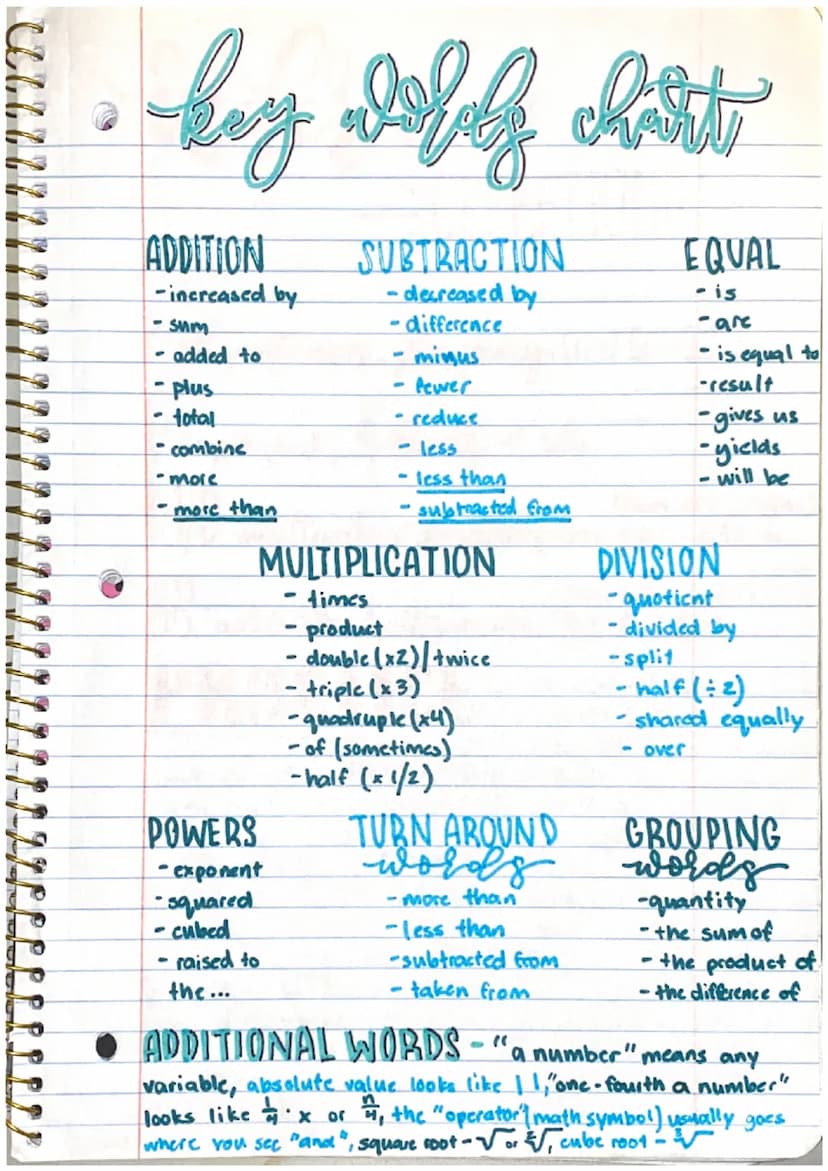 key words chart
ADDITION
- increased by
- sum
- added to
- plus
- total
- combine
- more
- more than
SUBTRACTION
- decreased by
- difference
- minus
- fewer
- reduce
- less
- less than
- subtracted from
EQUAL
- is
- are
- is equal to
- result
- gives us
- yields
- will be
MULTIPLICATION
- times
- product
- double (x2)/twice
- triple (x3)
- quadruple (x4)
- of (sometimes)
- half (x 1/2)
DIVISION
- quotient
- divided by
- split
- half (÷2)
- shared equally
- over
POWERS
- exponent
- squared
- cubed
- raised to
the...
TURN AROUND
words
- more than
- less than
- subtracted from
- taken from
GROUPING
words
- quantity
- the sum of
- the product of
- the difference of
ADDITIONAL WORDS - "a number" means any
variable, absolute value looks like | |, "one-fourth a number"
looks like 1/4 · x or n/4, the "operator" (math symbol) usually goes
where you see "and", square root - √ or ²√, cube root - ³√